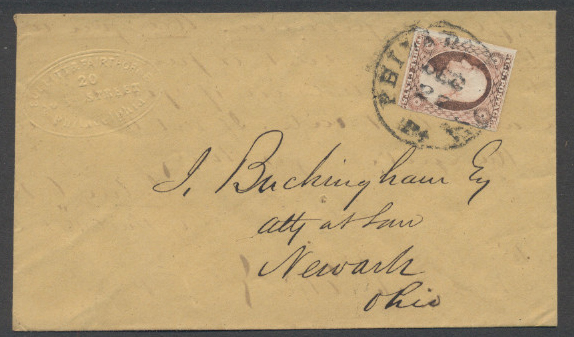 20
STREET
PHILADA
DEC
27
Pa
J. Buckingham Esq
atty at Law
Newark
Ohio